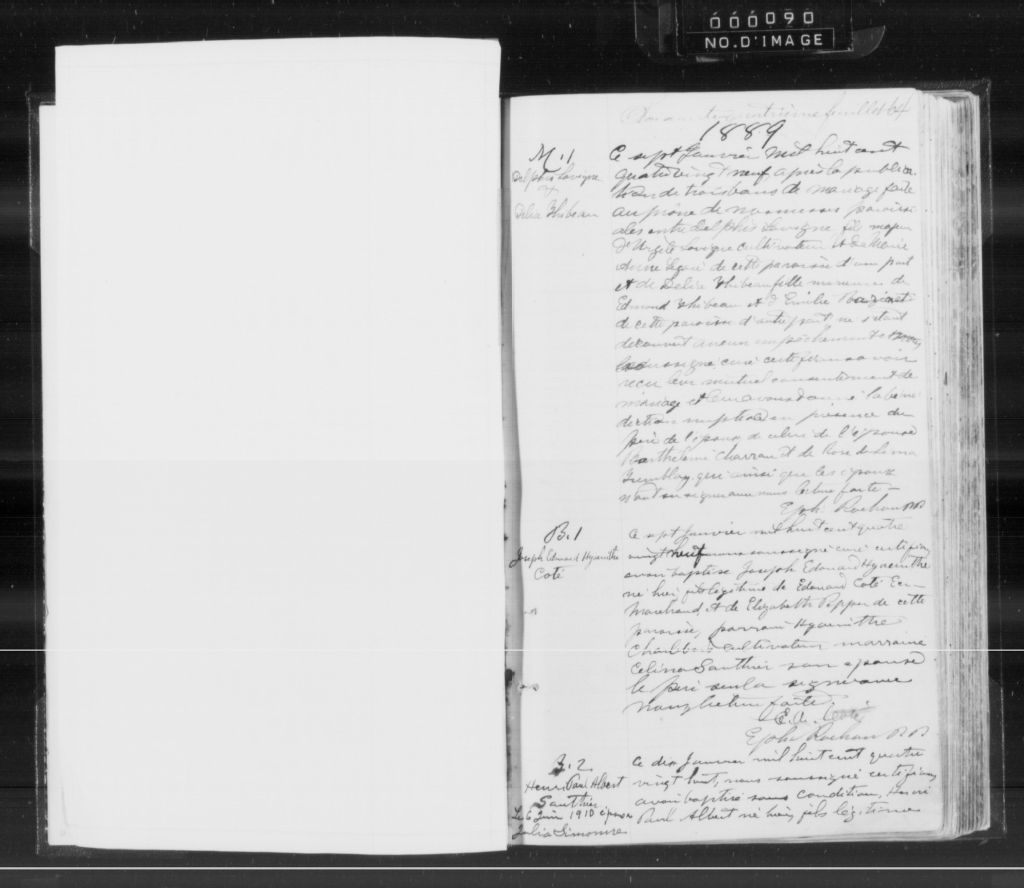 000090
NO. D'IMAGE
feuillet 64
1889
M. 1
Delphis Lavigne
&
Délia Thibeau
Ce sept Janvier Mil huit cent
quatre vingt neuf après la publica
tion de trois bans de mariage faite
au prône de nos messes paroissi
ales entre Delphis Lavigne fils majeur
d'Urgèle Lavigne cultivateur et de Marie
Anne de cette paroisse d'une part
et de Délia Thibeau fille mineure de
Edmond Thibeau et d'Emilie
de cette paroisse d'autre part ne s'étant
découvert aucun empêchement
soussigné curé certifions avoir
reçu leur mutuel consentement de
mariage et leur avons donné la béné
diction nuptiale en présence du
père de l'époux de celui de l'épouse
Barthelemi Charron et de Rose de Lima
Tremblay qui ainsi que les époux
n'ont su signer avec nous lecture faite —
Eph. Rochon Ptr
B. 1
Joseph Edouard Hyacinthe
Coté
Ce sept Janvier mil huit cent quatre
vingt neuf nous soussigné curé certifions
avoir baptisé Joseph Edouard Hyacinthe
né hier fils légitime de Edouard Coté Ecr
Marchand, et de Elizabeth Pepper de cette
paroisse, parrain Hyacinthe
Charlebois cultivateur marraine
Celina Gauthier son épouse
le père seul a signé avec
nous lecture faite
E. A. Coté
Eph. Rochon Ptr
B. 2
Henri Paul Albert
Gauthier
Le 6 Juin 1910 épouse
Julia Simoneau
Ce dix Janvier mil huit cent quatre
vingt huit, nous soussigné certifions
avoir baptisé sous condition, Henri
Paul Albert né hier, fils légitime